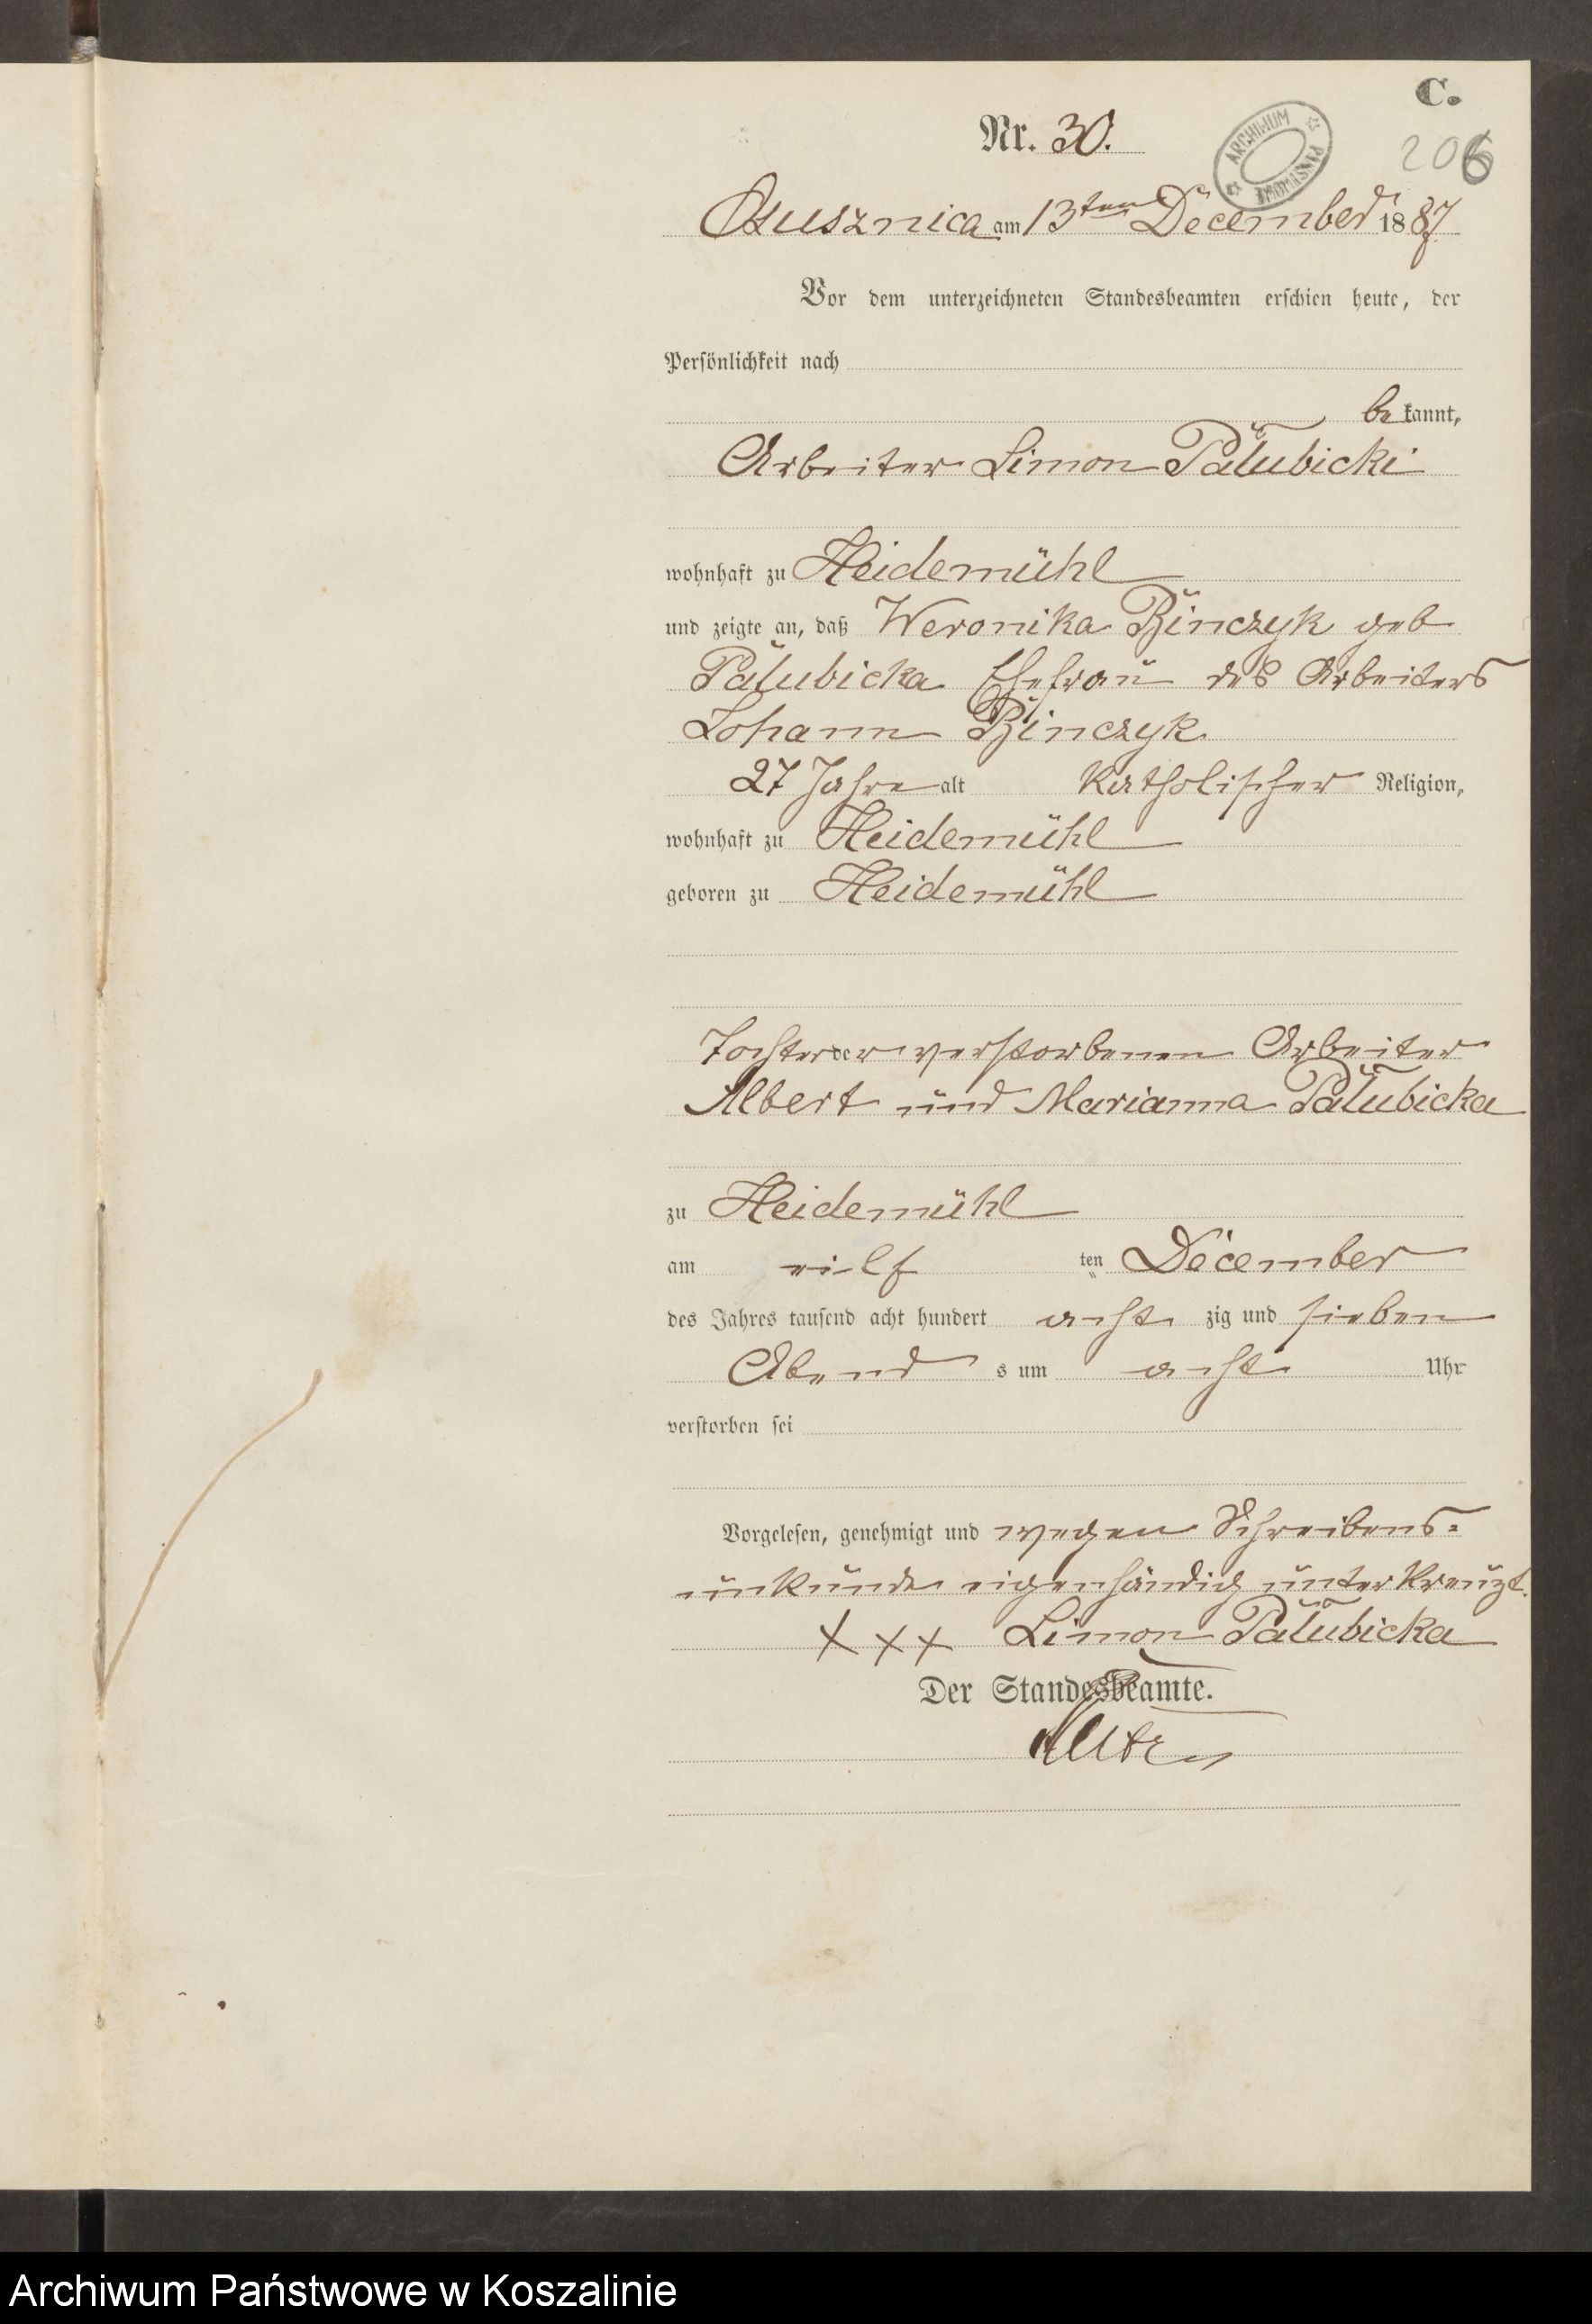 C.
Nr. 30.
ARCHIWUM PAŃSTWOWE
206
Osusznica am 13ten December 1887
Vor dem unterzeichneten Standesbeamten erschien heute, der
Persönlichkeit nach
be kannt,
Arbeiter Simon Pałubicki
wohnhaft zu Heidemühl
und zeigte an, daß Weronika Binczyk geb
Pałubicka Ehefrau des Arbeiters
Johann Binczyk
27 Jahre alt Katholischer Religion,
wohnhaft zu Heidemühl
geboren zu Heidemühl
Tochter der verstorbenen Arbeiter
Albert und Marianna Pałubicka
zu Heidemühl
am eilf ten December
des Jahres tausend acht hundert acht zig und sieben
Abend s um acht Uhr
verstorben sei
Vorgelesen, genehmigt und wegen Schreibens-
unkunde eigenhändig unterkreuzt.
+++ Simon Pałubicka
Der Standesbeamte.
Archiwum Państwowe w Koszalinie